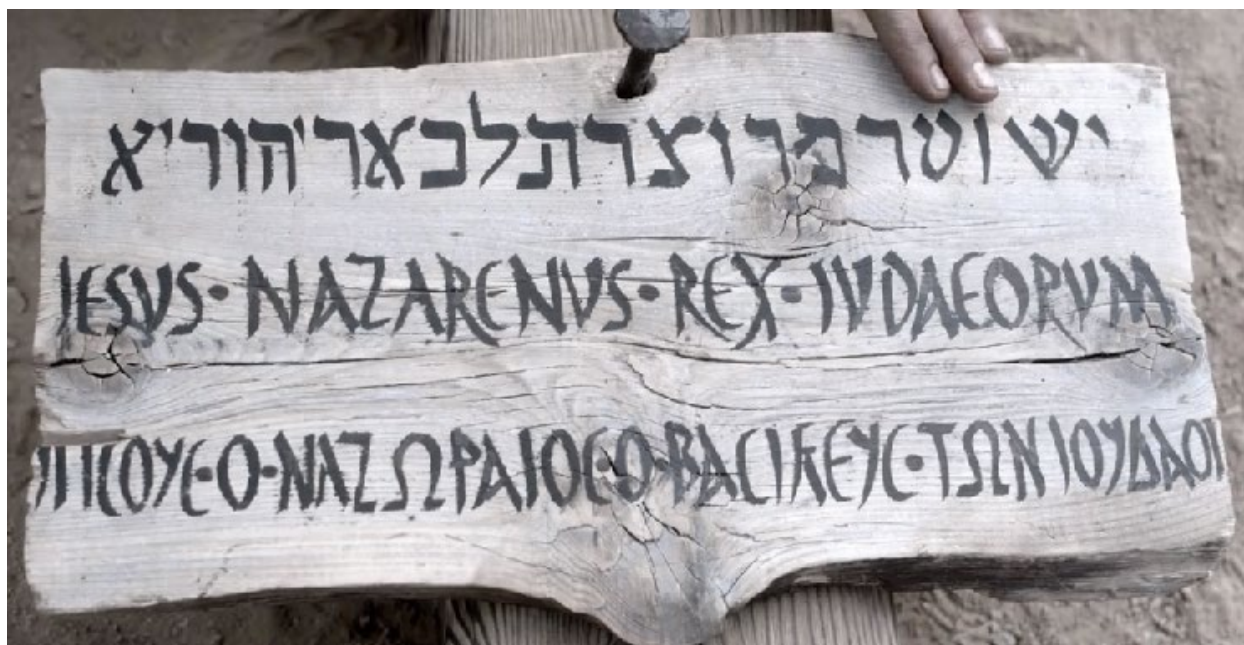 יש וטר מר וצרתלכאר יהוריא
JESVS·NAZARENVS·REX·IVDAEORVM
ΙΠϹΟΥϹ·Ο·ΝΑΖΩΡΑΙΟϹ·Ο·ΒΑϹΙΚΕΥϹ·ΤΩΝ ΙΟΥΔΑΟΙ